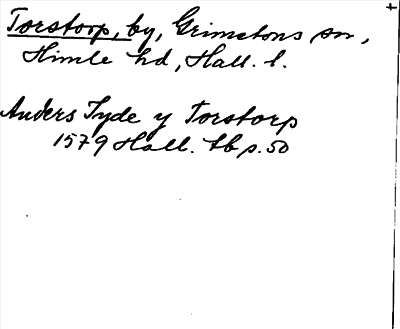 Torstorp, by, Grimetons sn,
Himle hd, Hall. l.
Anders Tyde y Torstorp
1579 Hall. tb p. 50